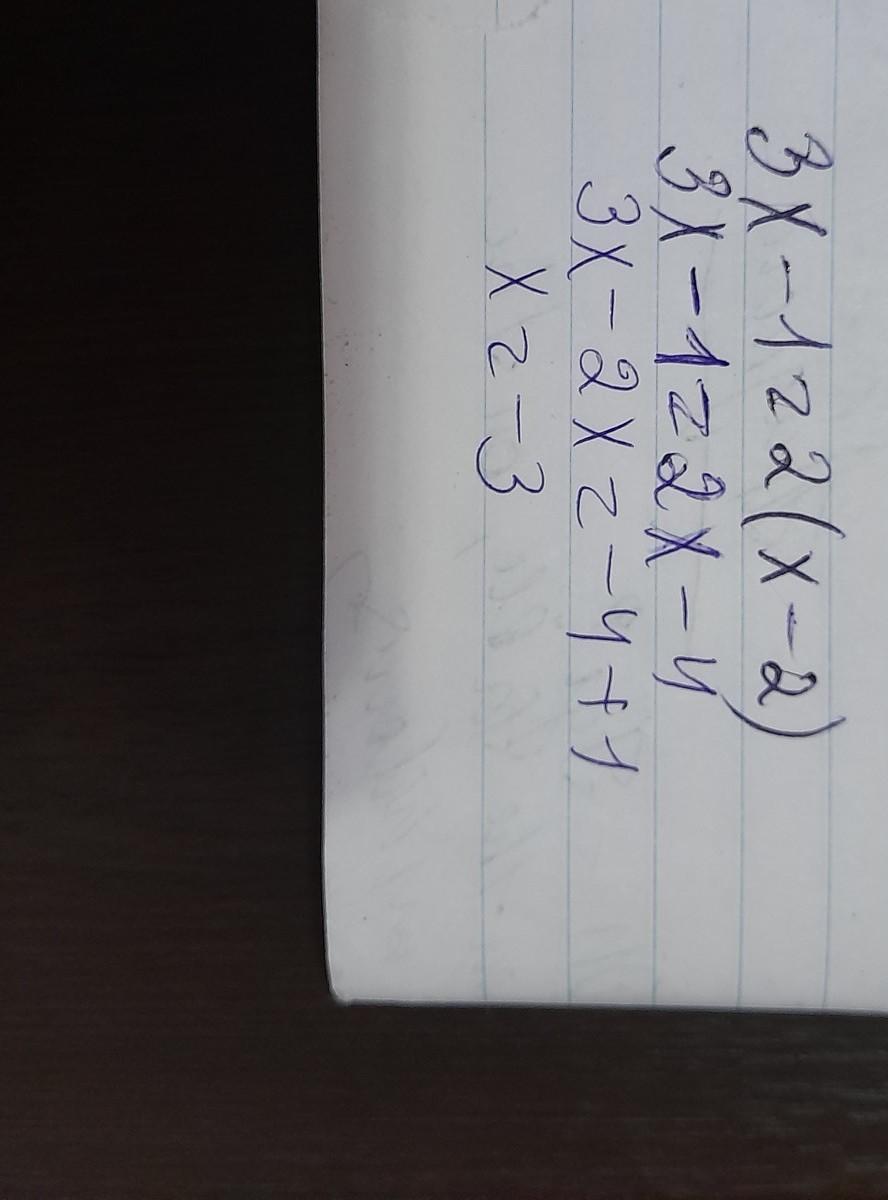 3x-1=2(x-2)
3x-1=2x-4
3x-2x=-4+1
x=-3